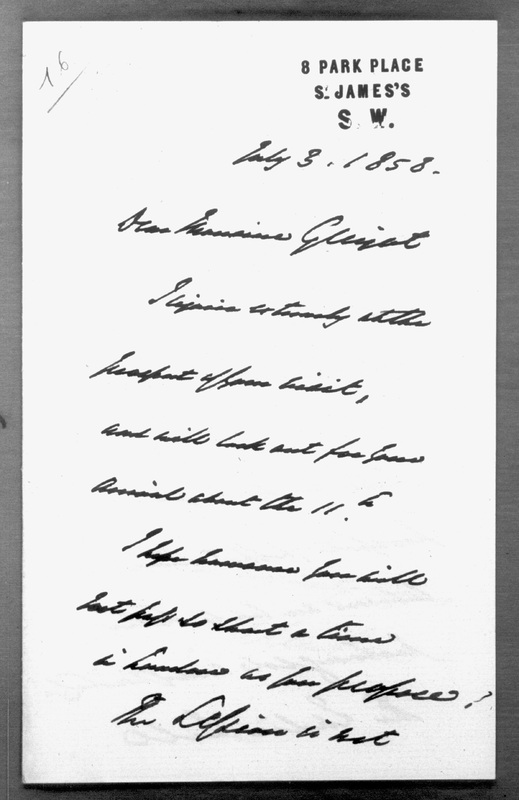 16
8 PARK PLACE
St. JAMES'S
S. W.
July 3. 1858.
Dear Monsieur
I rejoice extremely at the
prospect of your visit,
and will look out for your
arrival about the 11.th
I hope however you will
not pass so short a time
in London as you propose;
The Season is not